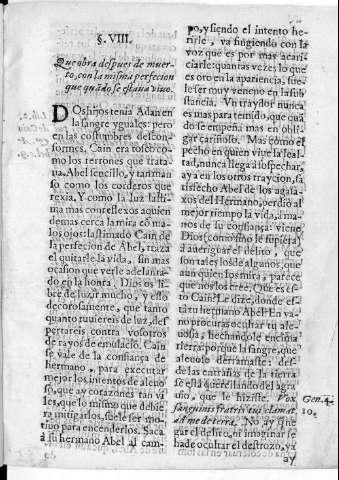 §. VIII.
Que obra despues de muer-
to, con la misma perfecion
que quãdo se estaua viuo.
DOs hijos tenia Adan en
la sangre yguales: pero
en las costumbres descon-
formes. Cain era tosco como
los terrones que trata-
ua. Abel sencillo, y tan man
so como los corderos que
regia. Y como la luz lasti-
ma mas con reflexos a quien
de mas cerca la mira cõ ma-
los ojos: lastimado Cain de
la perfecion de Abel, traza
el quitarle la vida, sin mas
ocasion que verle adelanta-
do en la honra. Dios os li-
bre de luzir mucho, y esso
decorosamente, que tanto
quanto tuuiereis de luz, des-
pertareis contra vosotros
de rayos de emulacio. Cain
se vale de la confiança de
hermano, para executar
mejor los intentos de aleuo
so, que ay coraçones tan va
les, que lo mismo que deuie
ra mitigarlos, suele ser mo-
tiuo para encenderlos. Saca
à su hermano Abel al cam-
po, y siendo el intento he-
rirle, va fingiendo con la
voz que es por mas acari-
ciarle: quantas vezes lo que
es oro en la apariencia, sue-
le ser muy veneno en la sub
stancia. Vn traydor nunca
es mas para temido, que quã
do se empeña mas en obli-
gar cariñoso. Mas como el
pecho en quien viue la leal-
tad, nunca llega à sospechar,
aya en los otros traycion, sa
tisfecho Abel de los agasa-
xos del Hermano, perdiò al
mejor tiempo la vida, a ma-
nos de su confiança: viene
Dios (como sino le supiera)
à aueriguar el delito, que
son tales los de algunos, que
aun quien los mira, parece
que no los cree. Que es es-
to Cain? Le dize, donde es-
tà tu hermano Abel? En va-
no procuras ocultar tu ale-
uosia, hechandole encima
tierra: porque la sangre, que
aleuoso derramaste, des-
de las entrañas de la tierra
se està querellando del agra
uio, que le hiziste. Vox
sanguinis fratris tui clamat
ad me de terra. No ay que
gar el delito, ni imaginar se
hade ocultar el destrozo, ya
ay
Gen. 4.
10.